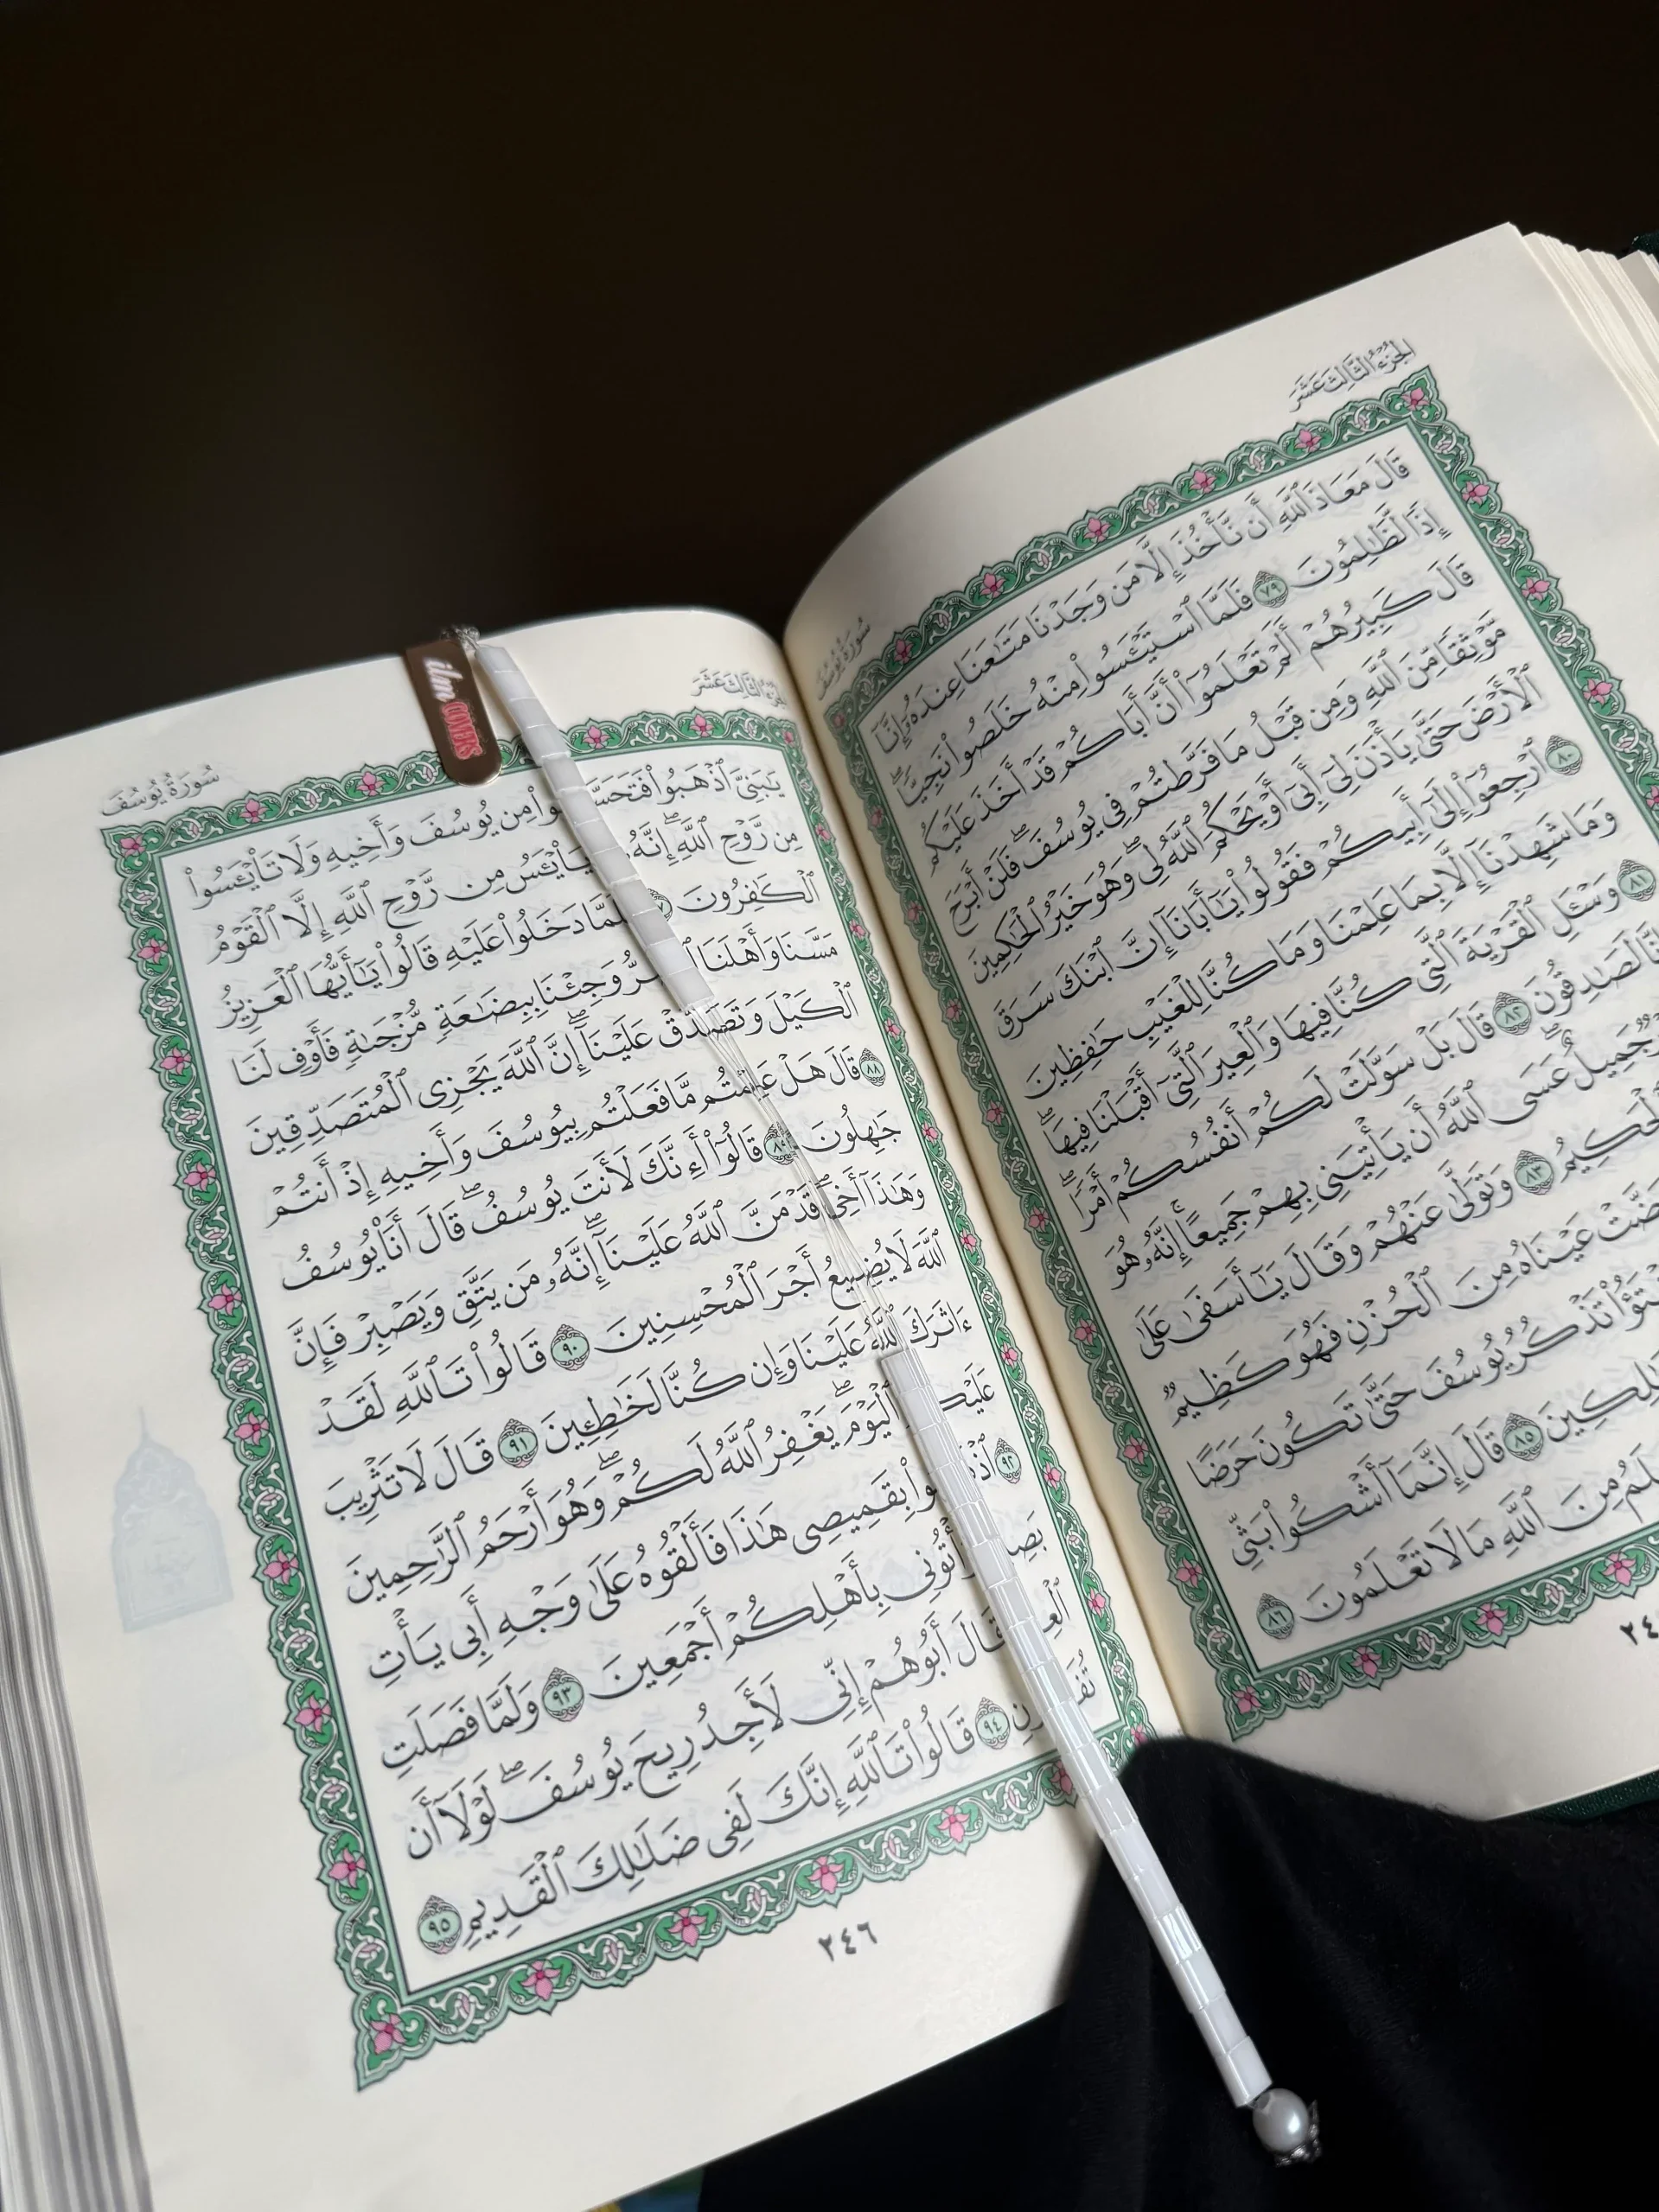 الجزء الثالث عشر
سورة يوسف
قَالَ مَعَاذَ ٱللَّهِ أَن نَّأْخُذَ إِلَّا مَن وَجَدْنَا مَتَٰعَنَا عِندَهُۥٓ إِنَّآ
إِذًا لَّظَٰلِمُونَ ٧٩ فَلَمَّا ٱسْتَيْـَٔسُوا۟ مِنْهُ خَلَصُوا۟ نَجِيًّاۖ
قَالَ كَبِيرُهُمْ أَلَمْ تَعْلَمُوٓا۟ أَنَّ أَبَاكُمْ قَدْ أَخَذَ عَلَيْكُم
مَّوْثِقًا مِّنَ ٱللَّهِ وَمِن قَبْلُ مَا فَرَّطتُمْ فِى يُوسُفَۖ فَلَنْ أَبْرَحَ
ٱلْأَرْضَ حَتَّىٰ يَأْذَنَ لِىٓ أَبِىٓ أَوْ يَحْكُمَ ٱللَّهُ لِىۖ وَهُوَ خَيْرُ ٱلْحَٰكِمِينَ
٨٠ ٱرْجِعُوٓا۟ إِلَىٰٓ أَبِيكُمْ فَقُولُوا۟ يَٰٓأَبَانَآ إِنَّ ٱبْنَكَ سَرَقَ
وَمَا شَهِدْنَآ إِلَّا بِمَا عَلِمْنَا وَمَا كُنَّا لِلْغَيْبِ حَٰفِظِينَ
٨١ وَسْـَٔلِ ٱلْقَرْيَةَ ٱلَّتِى كُنَّا فِيهَا وَٱلْعِيرَ ٱلَّتِىٓ أَقْبَلْنَا فِيهَاۖ
لَصَٰدِقُونَ ٨٢ قَالَ بَلْ سَوَّلَتْ لَكُمْ أَنفُسُكُمْ أَمْرًاۖ
جَمِيلٌۖ عَسَى ٱللَّهُ أَن يَأْتِيَنِى بِهِمْ جَمِيعًاۚ إِنَّهُۥ هُوَ
ٱلْحَكِيمُ ٨٣ وَتَوَلَّىٰ عَنْهُمْ وَقَالَ يَٰٓأَسَفَىٰ عَلَىٰ
عَيْنَاهُ مِنَ ٱلْحُزْنِ فَهُوَ كَظِيمٌ
تَذْكُرُ يُوسُفَ حَتَّىٰ تَكُونَ حَرَضًا
٨٥ قَالَ إِنَّمَآ أَشْكُوا۟ بَثِّى
مِنَ ٱللَّهِ مَا لَا تَعْلَمُونَ ٨٦
الثالث عشر
سورة يوسف
ilm COVERS
يَٰبَنِىَّ ٱذْهَبُوا۟ مِن يُوسُفَ وَأَخِيهِ وَلَا تَا۟يْـَٔسُوا۟
مِن رَّوْحِ ٱللَّهِۖ إِنَّهُۥ يَا۟يْـَٔسُ مِن رَّوْحِ ٱللَّهِ إِلَّا ٱلْقَوْمُ
ٱلْكَٰفِرُونَ دَخَلُوا۟ عَلَيْهِ قَالُوا۟ يَٰٓأَيُّهَا ٱلْعَزِيزُ
مَسَّنَا وَأَهْلَنَا وَجِئْنَا بِبِضَٰعَةٍ مُّزْجَىٰةٍ فَأَوْفِ لَنَا
ٱلْكَيْلَ وَتَصَدَّقْ عَلَيْنَآۖ إِنَّ ٱللَّهَ يَجْزِى ٱلْمُتَصَدِّقِينَ
٨٨ قَالَ هَلْ عَلِمْتُم مَّا فَعَلْتُم بِيُوسُفَ وَأَخِيهِ إِذْ أَنتُمْ
جَٰهِلُونَ ٨٩ قَالُوٓا۟ أَءِنَّكَ لَأَنتَ يُوسُفُۖ قَالَ أَنَا۠ يُوسُفُ
وَهَٰذَآ أَخِىۖ قَدْ مَنَّ ٱللَّهُ عَلَيْنَآۖ إِنَّهُۥ مَن يَتَّقِ وَيَصْبِرْ فَإِنَّ
ٱللَّهَ لَا يُضِيعُ أَجْرَ ٱلْمُحْسِنِينَ ٩٠ قَالُوا۟ تَٱللَّهِ لَقَدْ
ءَاثَرَكَ ٱللَّهُ عَلَيْنَا وَإِن كُنَّا لَخَٰطِـِٔينَ ٩١ قَالَ لَا تَثْرِيبَ
ٱلْيَوْمَۖ يَغْفِرُ ٱللَّهُ لَكُمْۖ وَهُوَ أَرْحَمُ ٱلرَّٰحِمِينَ
٩٢ بِقَمِيصِى هَٰذَا فَأَلْقُوهُ عَلَىٰ وَجْهِ أَبِى يَأْتِ
بِأَهْلِكُمْ أَجْمَعِينَ ٩٣ وَلَمَّا فَصَلَتِ
قَالَ أَبُوهُمْ إِنِّى لَأَجِدُ رِيحَ يُوسُفَۖ لَوْلَآ أَن
٩٤ قَالُوا۟ تَٱللَّهِ إِنَّكَ لَفِى ضَلَٰلِكَ ٱلْقَدِيمِ ٩٥
٢٤٦